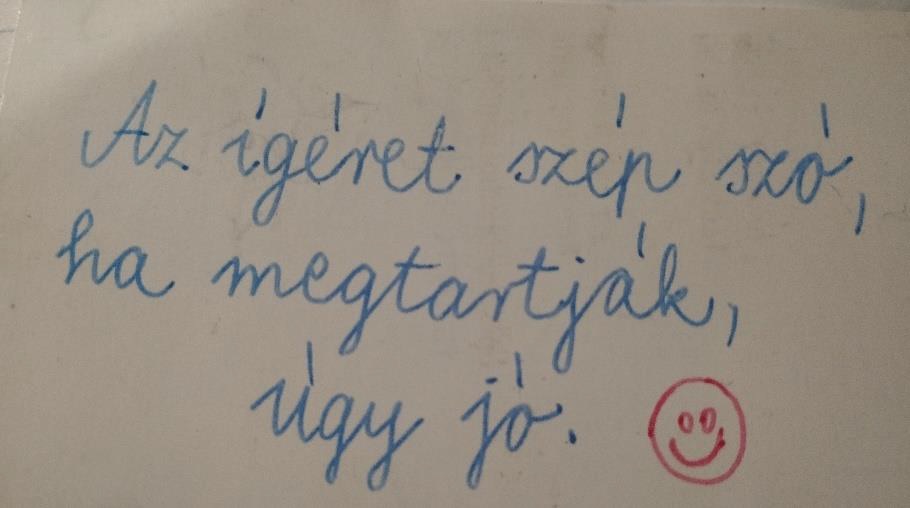 Az ígéret szép szó,
ha megtartják,
úgy jó.